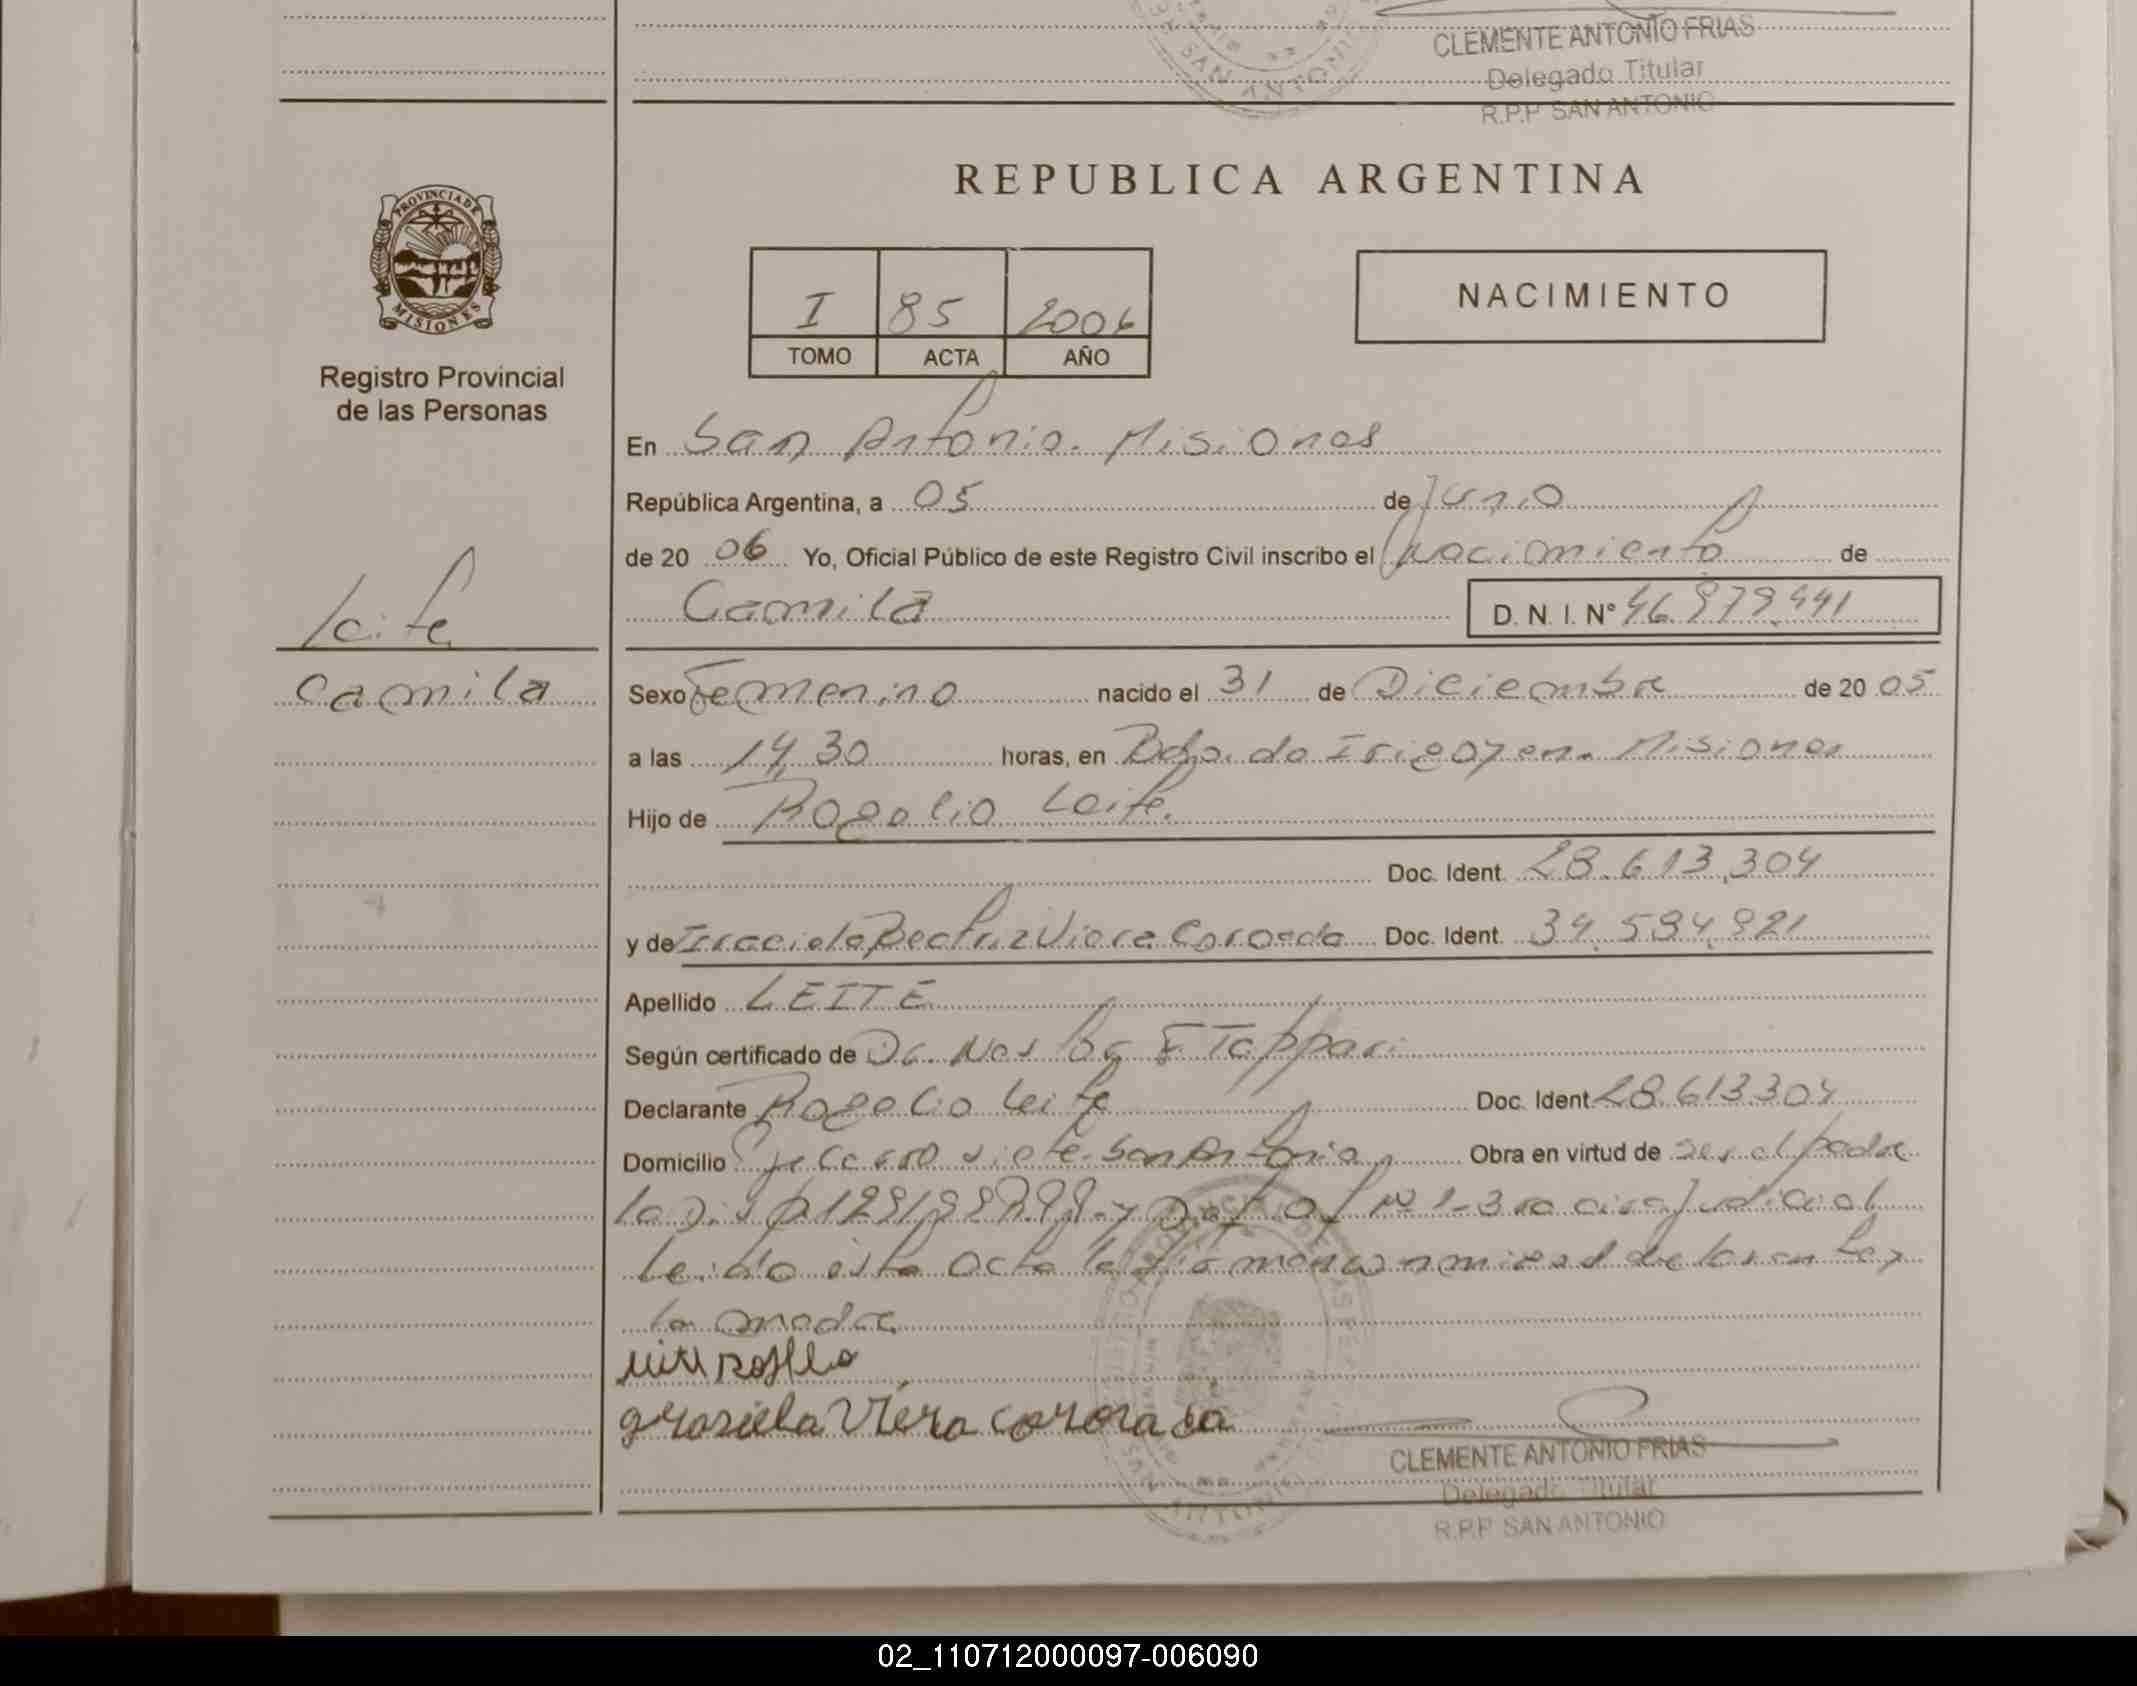 CLEMENTE ANTONIO FRIAS
Delegado Titular
R.P.P SAN ANTONIO
REPUBLICA ARGENTINA
PROVINCIA DE
MISIONES
Registro Provincial
de las Personas
I 85 2006
TOMO ACTA AÑO
NACIMIENTO
En San Antonio. Misiones
República Argentina, a 05 de Junio
de 20 06 Yo, Oficial Público de este Registro Civil inscribo el Nacimiento de
Camila D. N. I. Nº 46.979.441
Leite
Camila
Sexo Femenino nacido el 31 de Diciembre de 20 05
a las 14,30 horas, en Bdo. de Irigoyen. Misiones
Hijo de Rogelio Leite.
Doc. Ident. 28.613.304
y de Beatriz Viera Coroada Doc. Ident. 34.594.921
Apellido LEITE
Según certificado de Dr.
Declarante Rogelio Leite Doc. Ident. 28.613.304
Domicilio siete San Antonio Obra en virtud de ser el padre
la y Nº 1 - 3ra Judicial
Leido esta acta la
la madre
graziela Viera coroada
CLEMENTE ANTONIO FRIAS
Delegado Titular
R.P.P SAN ANTONIO
02_110712000097-006090